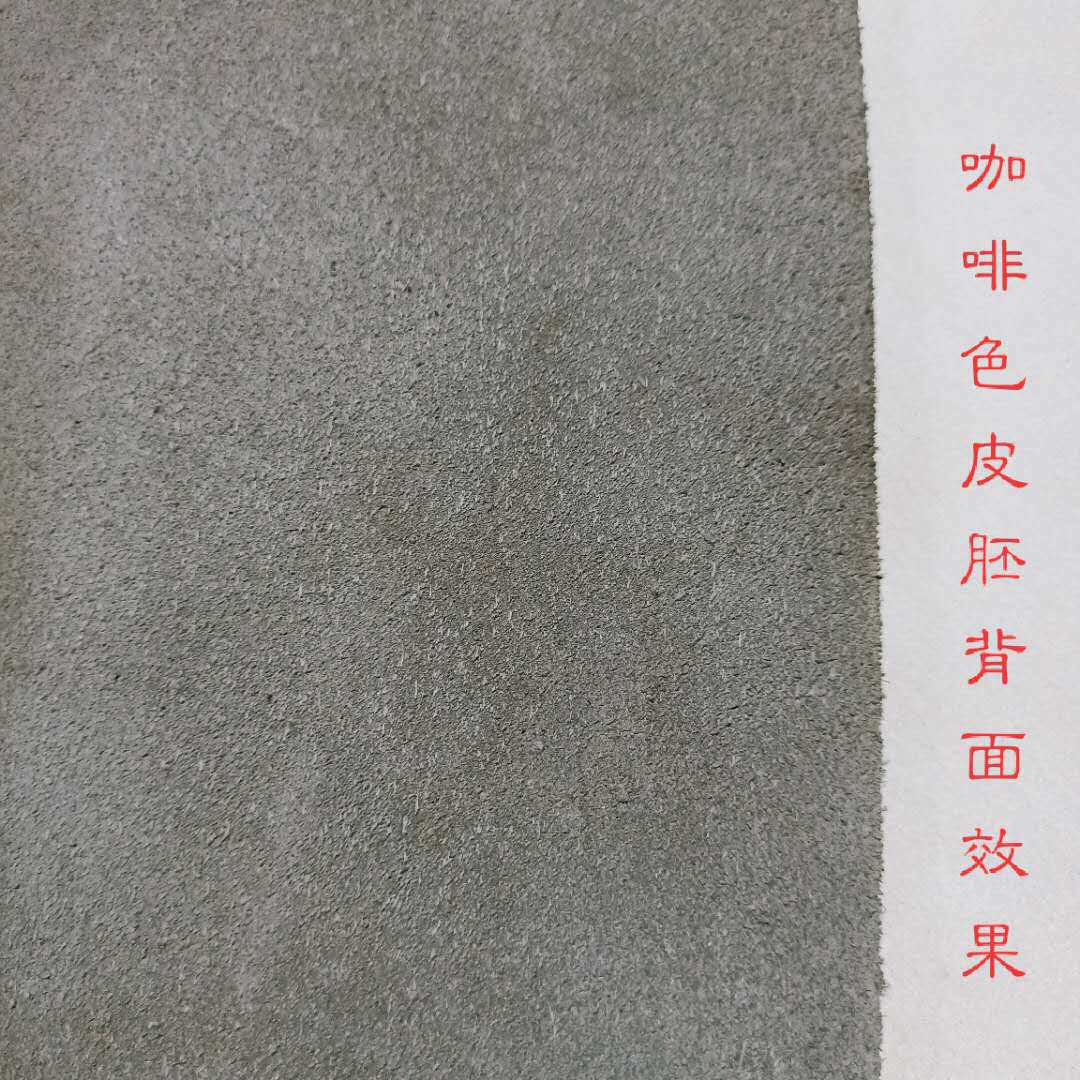 咖啡色皮胚背面效果